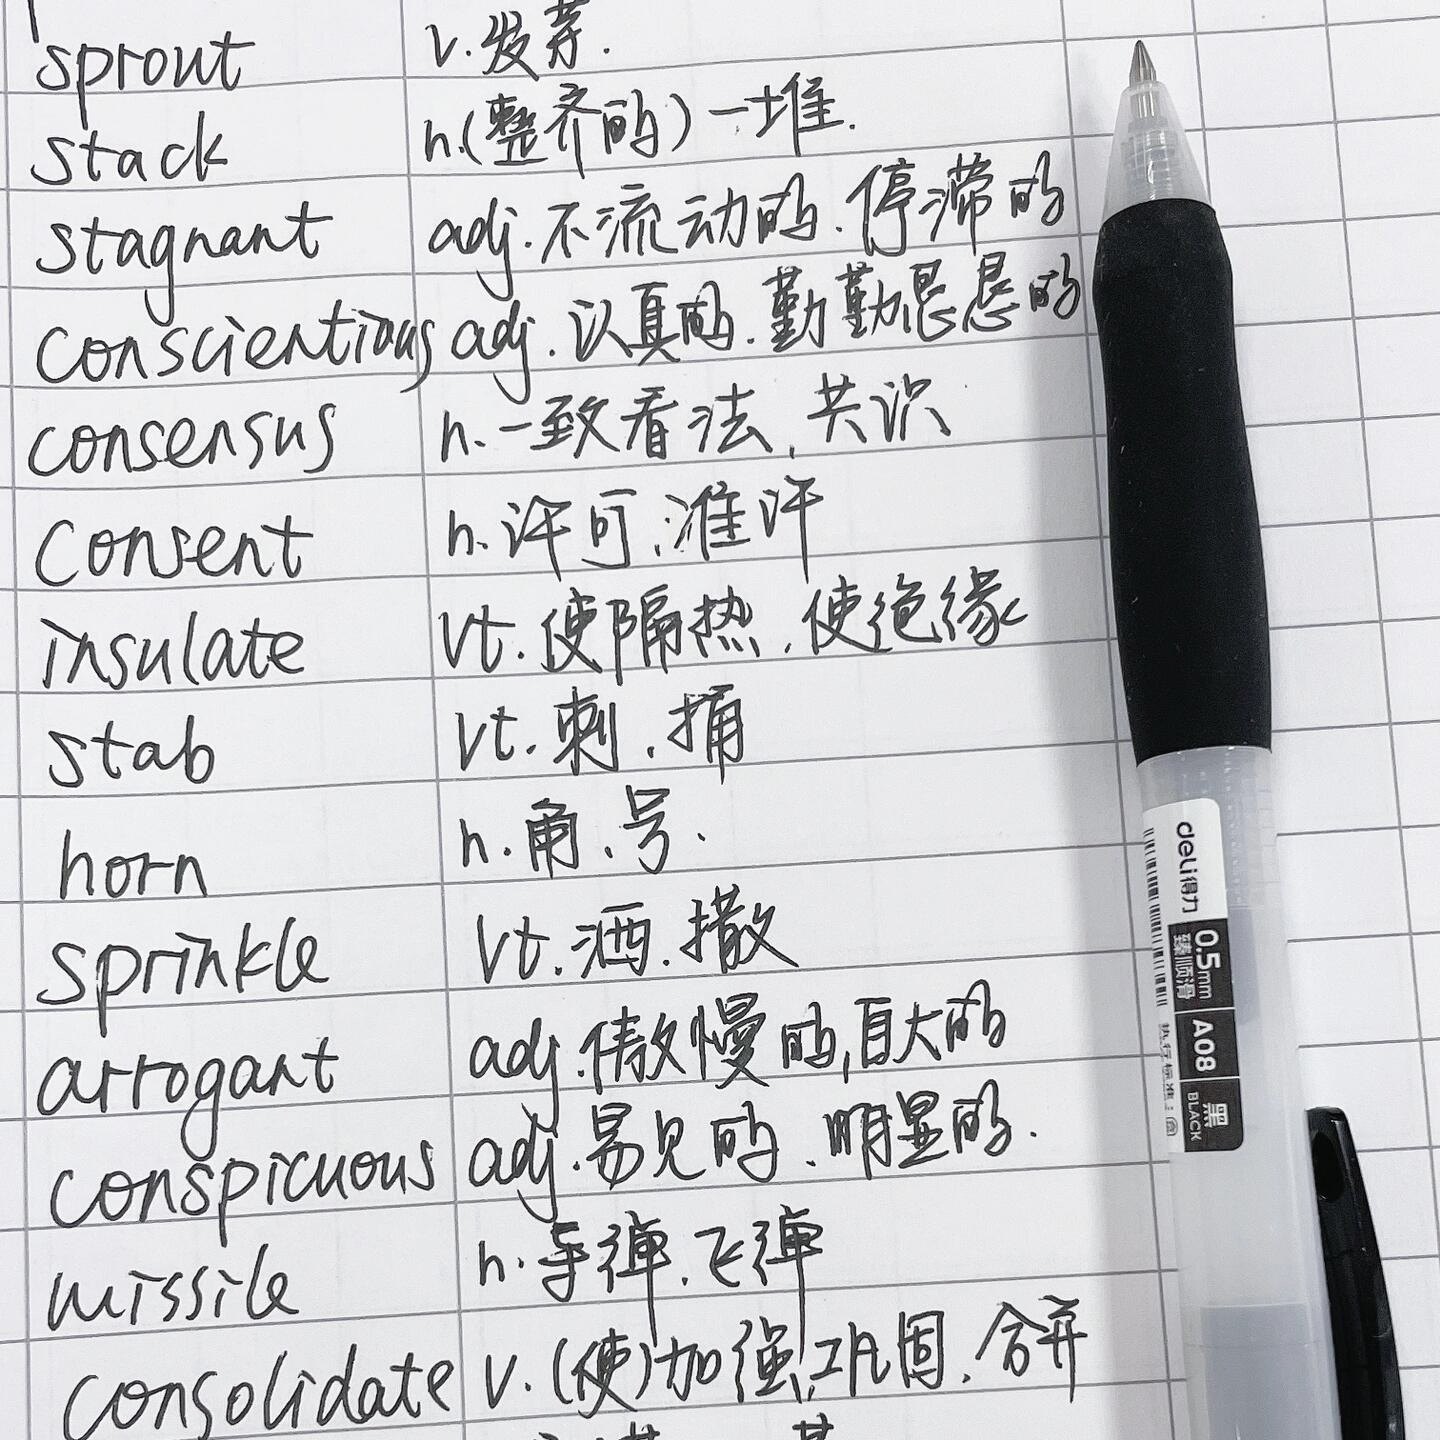 sprout v.发芽.
stack n.(整齐的)一堆.
stagnant adj.不流动的.停滞的
conscientious adj.认真的.勤勤恳恳的
consensus n.一致看法,共识
consent n.许可,准许
insulate vt.使隔热,使绝缘
stab vt.刺.捅
horn n.角.号.
sprinkle vt.洒.撒
arrogant adj.傲慢的,自大的
conspicuous adj.易见的.明显的.
missile n.导弹.飞弹
consolidate v.(使)加强,巩固,合并
deli得力
0.5mm
臻顺滑
A08
黑
BLACK
执行标准: